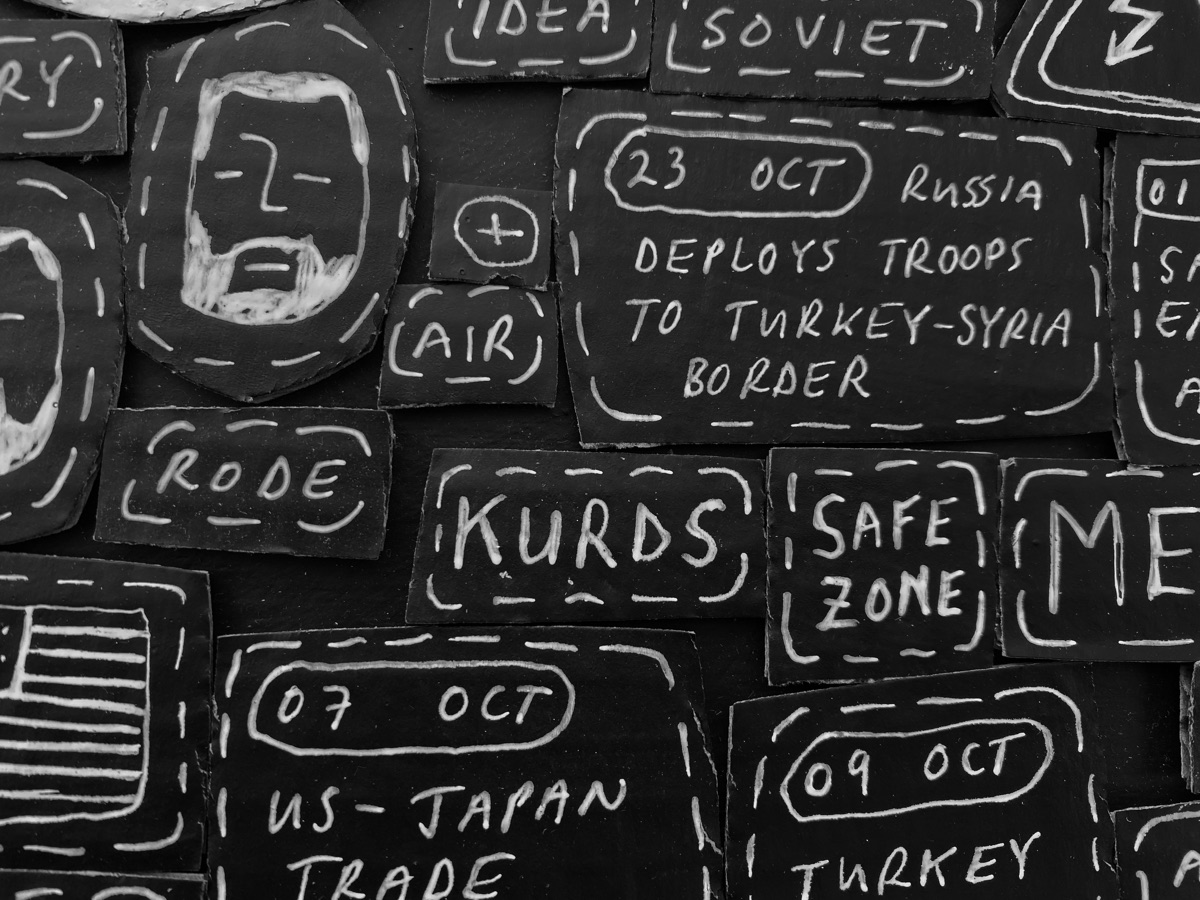 IDEA
SOVIET
RY
23 OCT RUSSIA
DEPLOYS TROOPS
TO TURKEY-SYRIA
BORDER
01
AIR
RODE
KURDS
SAFE
ZONE
ME
07 OCT
US-JAPAN
TRADE
09 OCT
TURKEY